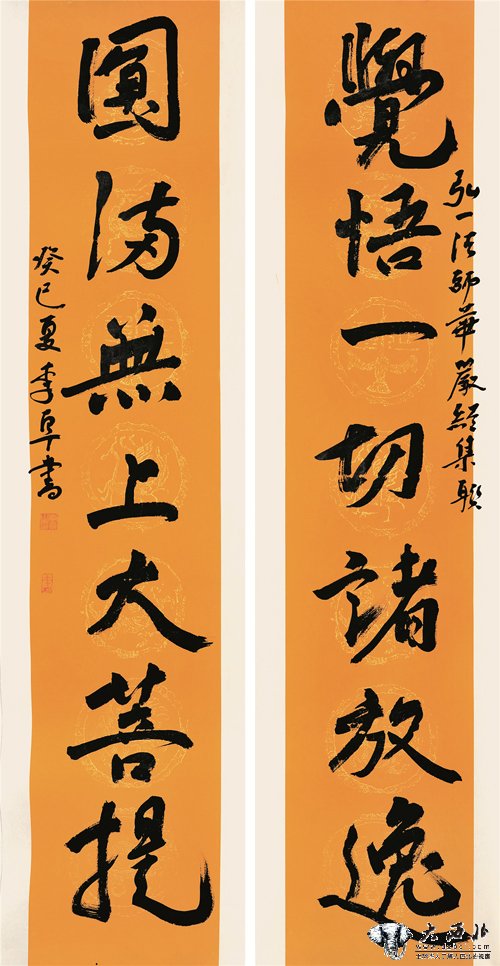 覺悟一切諸放逸
弘一法師華嚴經集聯
圓滿無上大菩提
癸巳夏李阜書
大西北